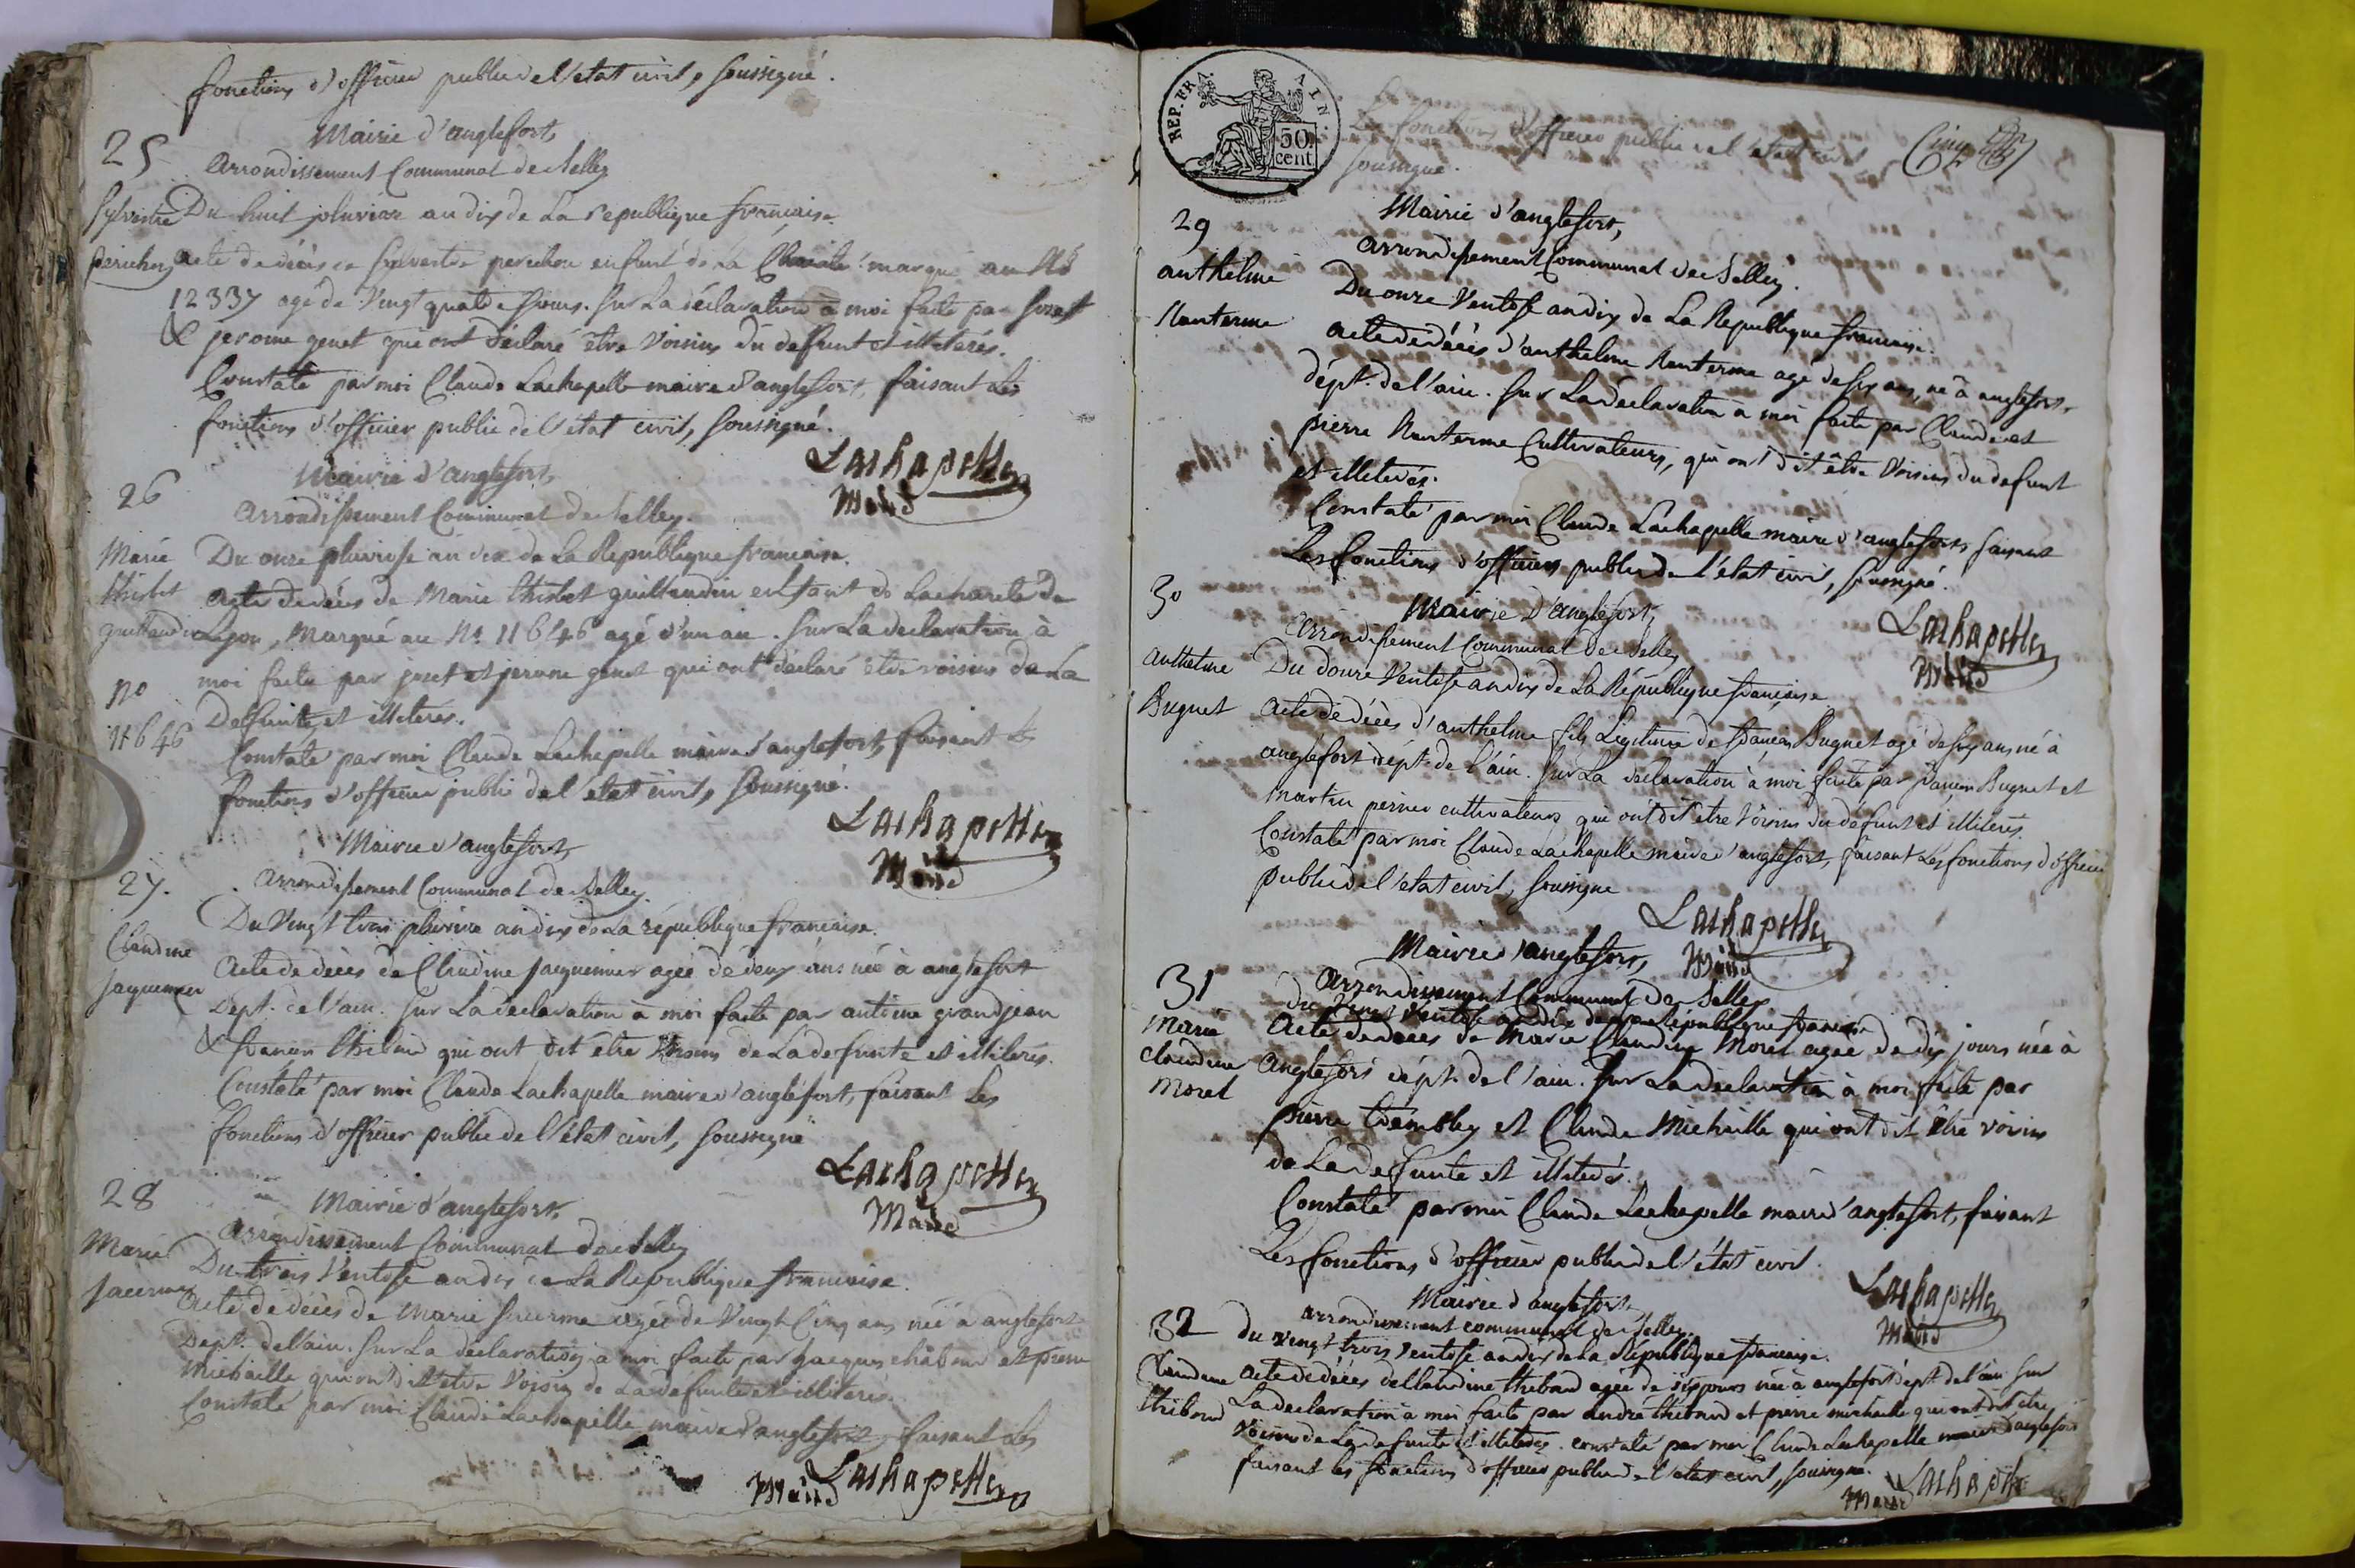 fonctions d'officier public de l'etat civil, soussigné.
Mairie d'anglefort,
25
arrondissement Communal de Belley
Sylvestre
Du huit pluviose an dix de La republique française.
perichon
acte de décès de Sylvestre perichon enfant de la Charité marqué au No
12337 agé de Vingt quatre jours. Sur La déclaration à moi faite par joset
& jerome genet qui ont déclaré être Voisins du defunt et illiterés.
Constaté par moi Claude Lachapelle maire d'anglefort, faisant Les
fonctions d'officier public de l'état civil, soussigné.
Lachapelle
Maire
Mairie d'anglefort,
26
arrondissement Communal de Belley.
Marie
Du onze pluviose an dix de La République française.
thisbet
acte de décès de Marie thisbet guillaudin enfant de La charité de
guillaudin
Lyon, Marqué au No. 11646 agé d'un an. Sur La declaration à
moi faite par joset et jerome genet qui ont déclaré etre voisins de La
no
Defunte, et illiterés.
11646
Constaté par moi Claude Lachapelle maire d'anglefort, faisant les
fonctions d'officier public de l'etat civil, soussigné.
Lachapelle
Maire
Mairie d'anglefort,
27.
arrondissement Communal de Belley.
Du Vingt trois pluviose an dix de La république française.
Claudine
acte de décès de Claudine jacquemier agée de deux ans née à anglefort
jaquemier
Dept. de l'ain. Sur La declaration à moi faite par antoine grandjean
& françois thibaud qui ont dit être Voisins de La defunte et illiterés.
Constaté par moi Claude Lachapelle maire d'anglefort, faisant Les
fonctions d'officier public de l'état civil, soussigné
Lachapelle
Maire
28
Mairie d'anglefort,
arrondissement Communal de Belley
Marie
Du trois Ventose an dix de La République française.
acte de décès de Marie agée de Vingt Cinq ans née à anglefort
Dept. de l'ain. Sur La declaration à moi faite par jacques et pierre
Michaille qui ont dit etre Voisins de La defunte et illiterés.
Constaté par moi Claude Lachapelle maire d'anglefort, faisant Les
Lachapelle
Maire
REP. FRA. AIN.
50 cent
Les fonctions d'officier public de l'etat civil
soussigné.
Cinq
Mairie d'anglefort,
29
arrondissement Communal de Belley.
anthelme
Du onze Ventose an dix de La République française.
Nanterme
acte de décès d'anthelme Nanterme agé de six ans, né à anglefort,
dépt. de l'ain. Sur La déclaration à moi faite par Claude et
pierre Nanterme Cultivateurs, qui ont dit être Voisins du defunt
et illiterés.
Constaté par moi Claude Lachapelle maire d'anglefort, faisant
Les fonctions d'officier public de l'état civil, soussigné.
Lachapelle
Maire
30
Mairie d'anglefort,
arrondissement Communal de Belley
anthelme
Du douze Ventose an dix de La République française
Bugnet
acte de décès d'anthelme fils Légitime de françois Bugnet agé de six ans né à
anglefort dépt. de l'ain. Sur La declaration à moi faite par françois Bugnet et
Martin cultivateurs qui ont dit etre Voisins du défunt et illiterés.
Constaté par moi Claude Lachapelle maire d'anglefort, faisant Les fonctions d'officier
public de l'etat civil, soussigné
Lachapelle
Maire
Mairie d'anglefort,
31
arrondissement Communal de Belley
du Ventose an dix de la République française
Marie
acte de décès de Marie Claudine Moret agée de dix jours née à
claudine
anglefort dépt. de l'ain. Sur La declaration à moi faite par
Moret
pierre Trembley et Claude Michaille qui ont dit être voisins
de La defunte et illiterés.
Constaté par moi Claude Lachapelle maire d'anglefort, faisant
Les fonctions d'officier public de l'état civil.
Lachapelle
Maire
Mairie d'anglefort
arrondissement communal de Belley.
32
du vingt trois Ventose an dix de La République française.
Claudine
acte de décès de Claudine thibaud agée de jours née à anglefort dépt de l'ain Sur
thibaud
La declaration à moi faite par andré thibaud et pierre michaille qui ont dit etre
Voisins de La defunte et illiterés. constaté par moi Claude Lachapelle maire d'anglefort
faisant les fonctions d'officier public de l'état civil, soussigné.
Lachapelle
Maire